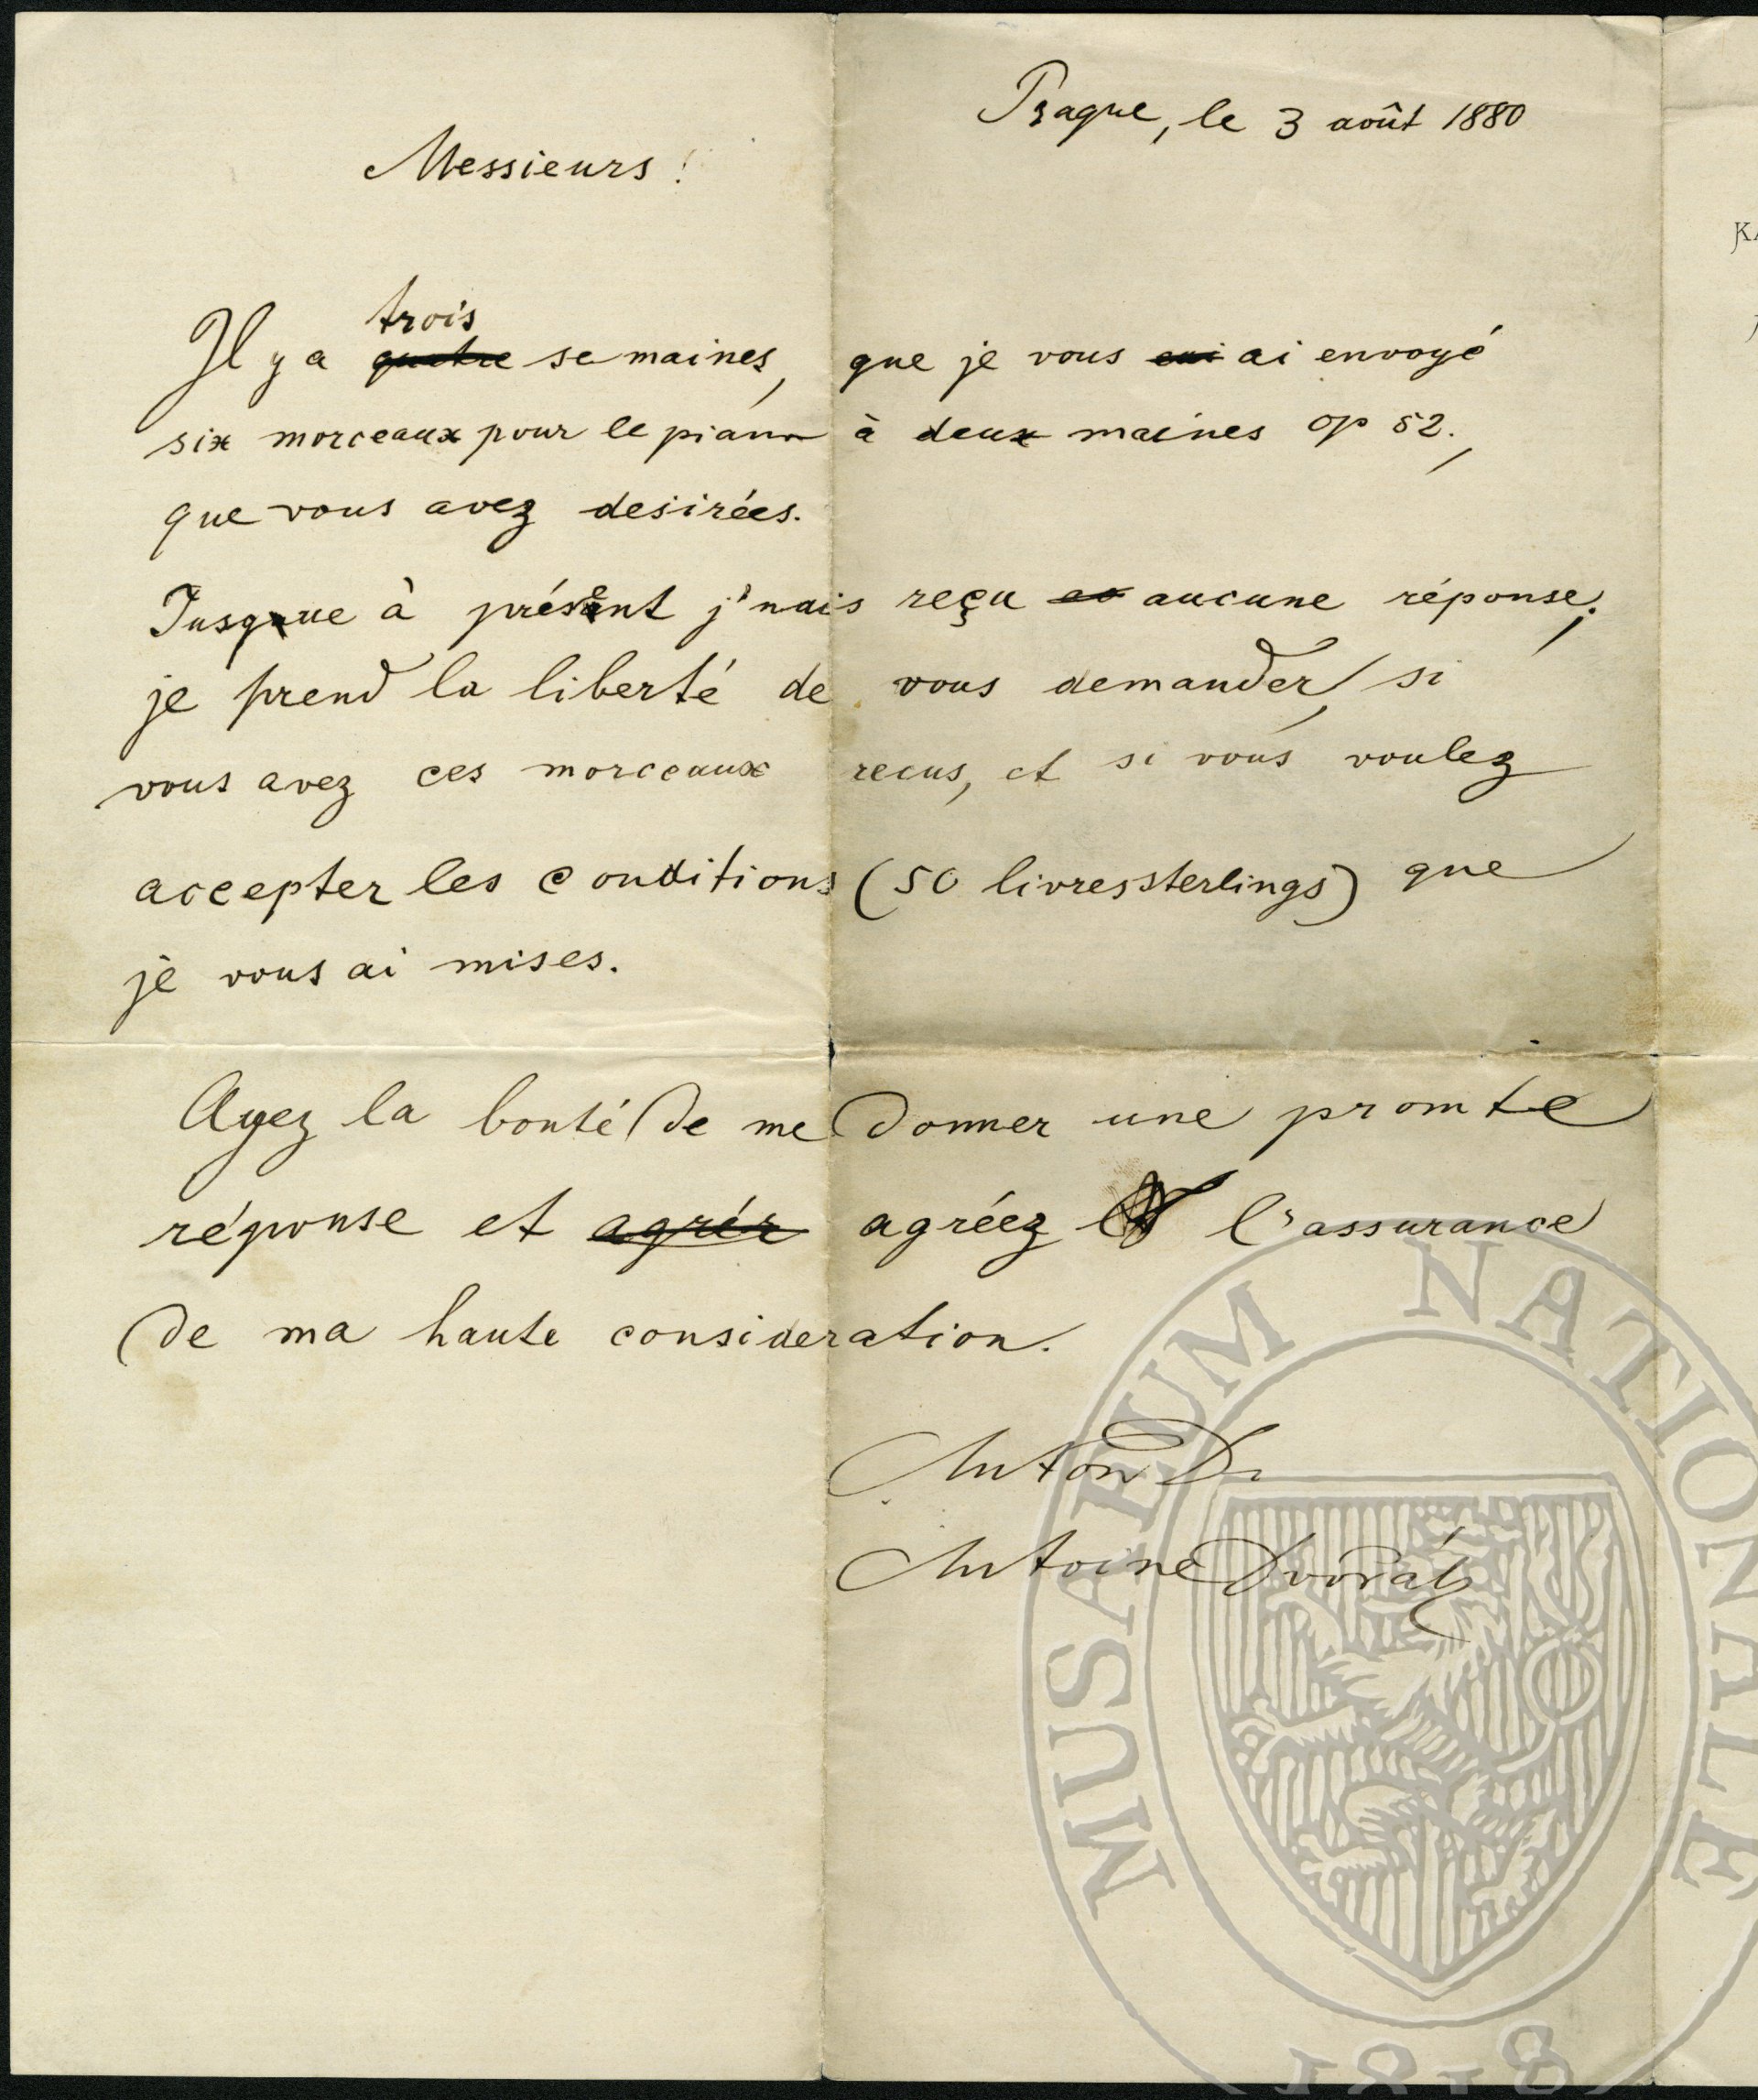 Prague, le 3 août 1880
Messieurs!
trois
Il y a quatre semaines, que je vous ai envoyé
six morceaux pour le piano à deux maines op 52.,
que vous avez desirées.
Jusque à présent j'nais reçu aucune réponse;
je prend la liberté de vous demander, si
vous avez ces morceaux recus, et si vous voulez
accepter les conditions (50 livressterlings) que
je vous ai mises.
Ayez la bonté de me donner une promte
réponse et agrér agréez l'assurance
de ma haute consideration.
Anton D
Antoine Dvořák
MUSAEUM NATIONALE
1818
KA